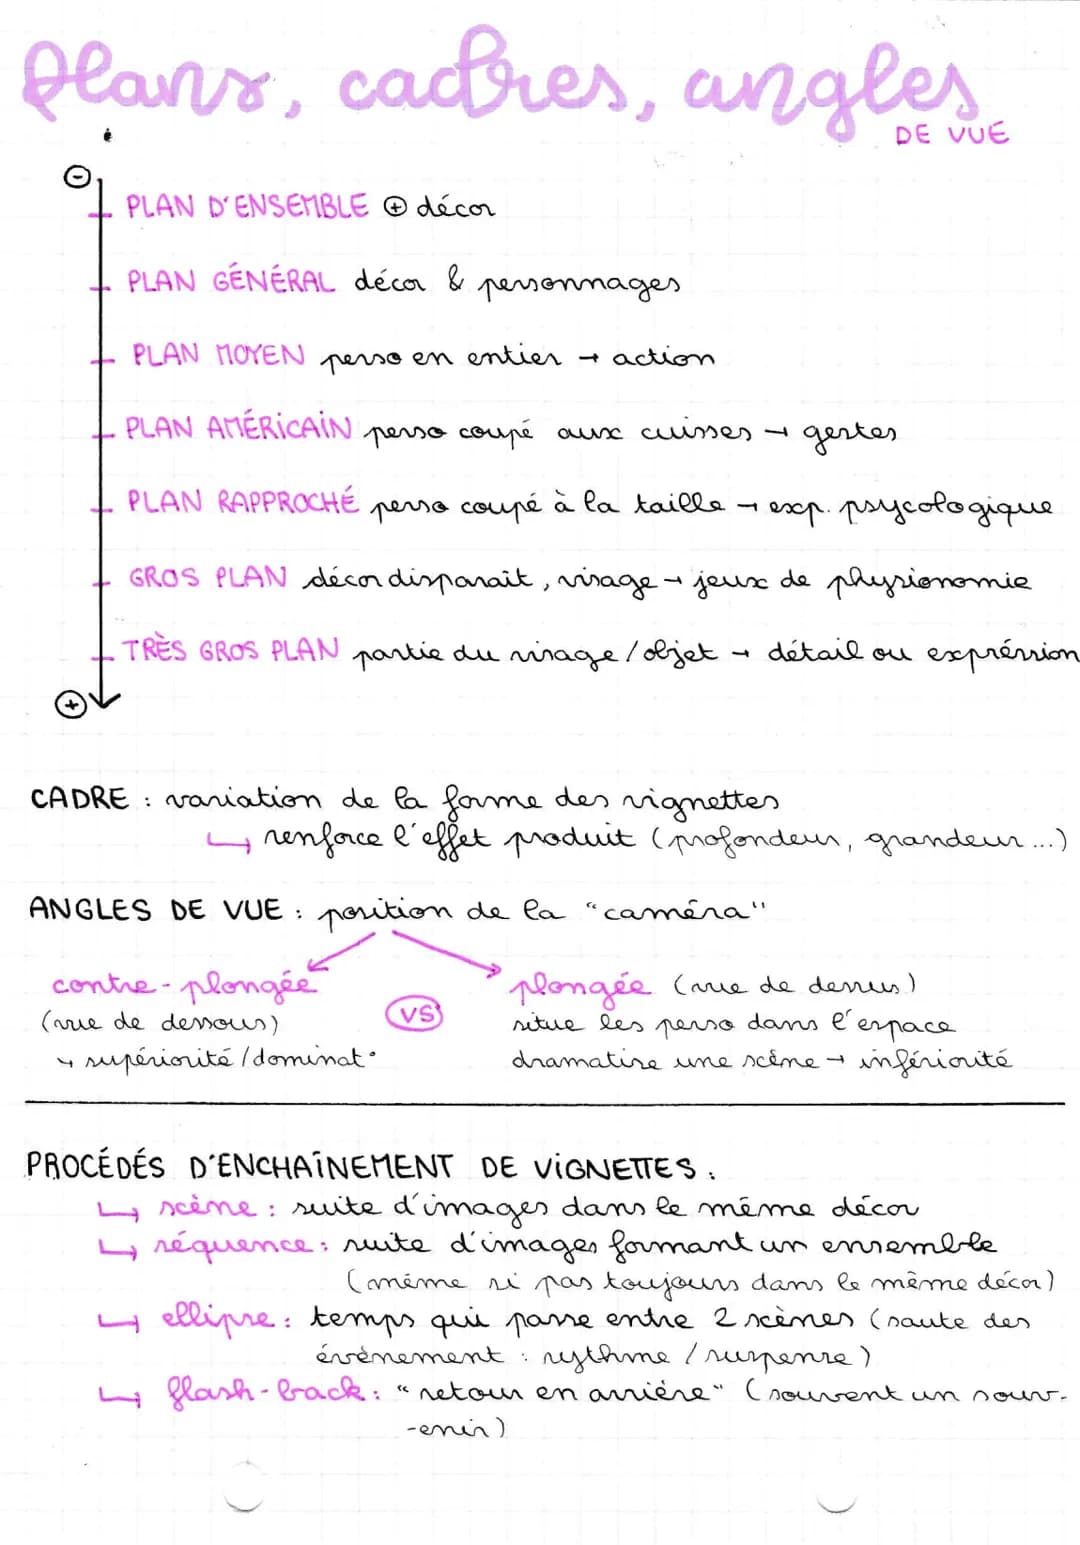 Plans, cadres, angles
DE VUE
⊖
PLAN D'ENSEMBLE ⊕ décor
PLAN GÉNÉRAL décor & personnages
PLAN MOYEN perso en entier → action
PLAN AMÉRICAIN perso coupé aux cuisses → gestes
PLAN RAPPROCHÉ perso coupé à la taille → exp. psycologique
GROS PLAN décor disparait, visage → jeux de physionomie
TRÈS GROS PLAN partie du visage/objet → détail ou expréssion
⊕
CADRE : variation de la forme des vignettes
↳ renforce l'effet produit (profondeur, grandeur...)
ANGLES DE VUE : position de la "caméra"
contre-plongée
(vue de dessous)
↳ supériorité/dominat°
VS
plongée (vue de dessus)
situe les perso dans l'espace
dramatise une scène → infériorité
PROCÉDÉS D'ENCHAÎNEMENT DE VIGNETTES :
↳ scène : suite d'images dans le même décor
↳ séquence : suite d'images formant un ensemble
(même si pas toujours dans le même décor)
↳ ellipse : temps qui passe entre 2 scènes (saute des
évènement : rythme / suspense)
↳ flash-back : "retour en arrière" (souvent un souv-
-enir)